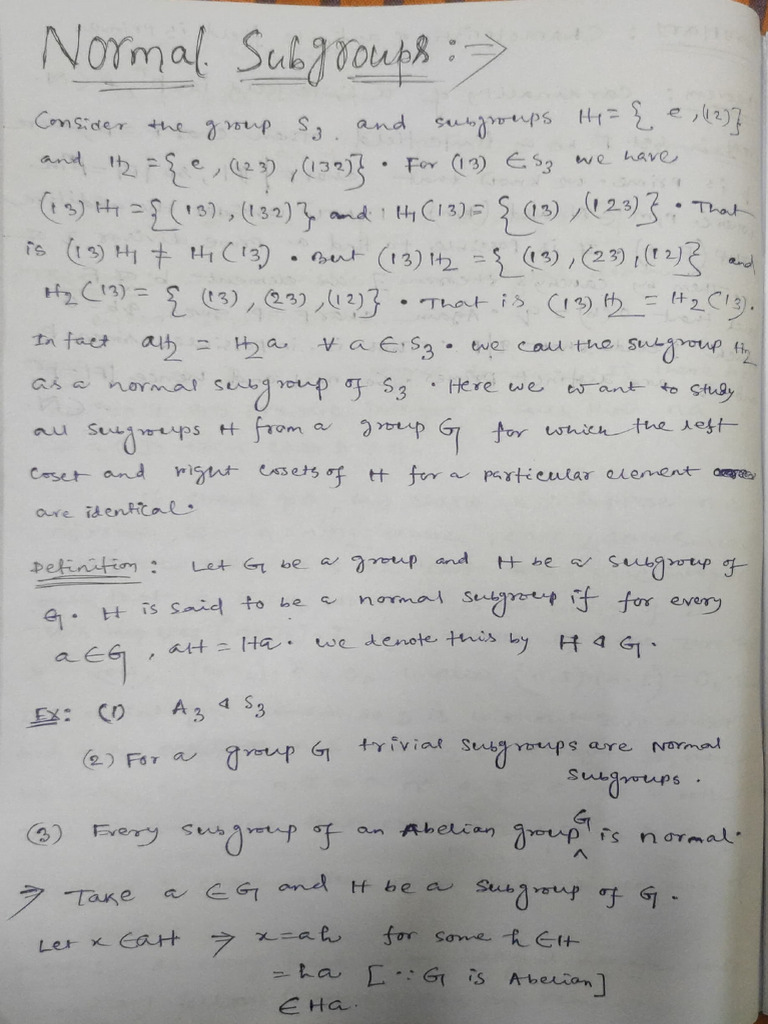 Normal Subgroups :⇒
Consider the group S₃ and subgroups H₁ = { e, (12)}
and H₂ = { e, (123), (132)}. For (13) ∈ S₃ we have
(13) H₁ = { (13), (132)} and H₁ (13) = { (13), (123)}. That
is (13) H₁ ≠ H₁ (13). But (13) H₂ = { (13), (23), (12)} and
H₂ (13) = { (13), (23), (12)}. That is (13) H₂ = H₂ (13).
In fact aH₂ = H₂a ∀ a ∈ S₃. We call the subgroup H₂
as a normal subgroup of S₃. Here we want to study
all subgroups H from a group G for which the left
coset and right cosets of H for a particular element
are identical.
Definition : Let G be a group and H be a subgroup of
G. H is said to be a normal subgroup if for every
a ∈ G, aH = Ha. We denote this by H ⊲ G.
Ex: (1) A₃ ⊲ S₃
(2) For a group G trivial subgroups are Normal
subgroups.
(3) Every subgroup of an Abelian group G is normal.
⇒ Take a ∈ G and H be a subgroup of G.
Let x ∈ aH ⇒ x = ah for some h ∈ H
= ha [∵ G is Abelian]
∈ Ha.